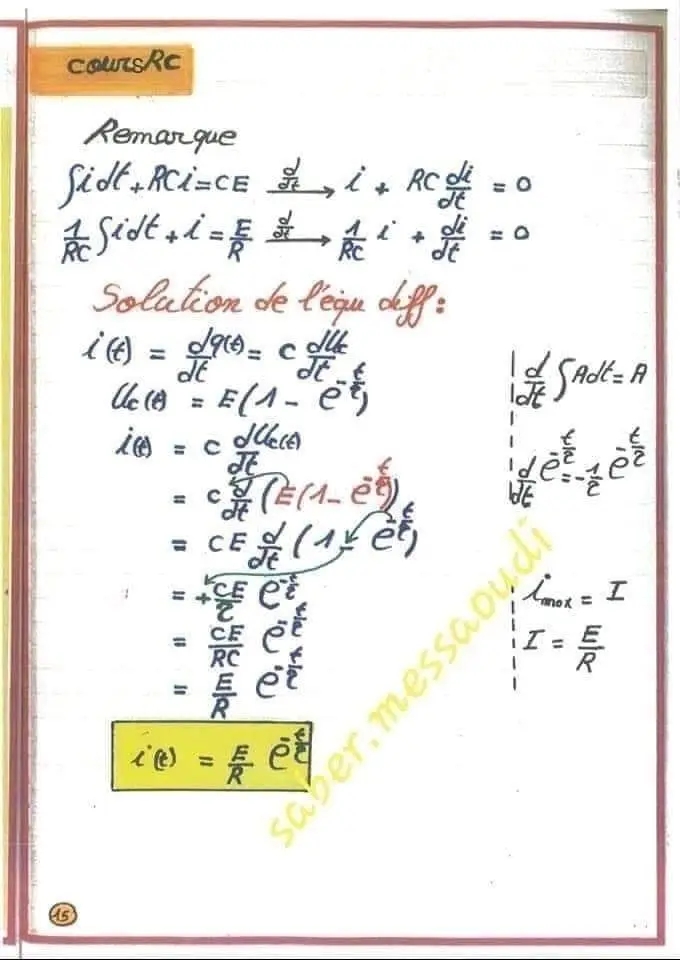 cours RC
Remarque
∫idt + RCi = CE d/dt → i + RC di/dt = 0
1/RC ∫idt + i = E/R d/dt → 1/RC i + di/dt = 0
Solution de l'équ diff :
i(t) = dq(t)/dt = C dUc/dt
Uc(t) = E(1 - e^-t/τ)
i(t) = C dUc(t)/dt
= C d/dt (E(1 - e^-t/τ))
= CE d/dt (1 - e^-t/τ)
= + CE/τ e^-t/τ
= CE/RC e^-t/τ
= E/R e^-t/τ
i(t) = E/R e^-t/τ
d/dt ∫Adt = A
d/dt e^-t/τ = -1/τ e^-t/τ
i max = I
I = E/R
saber.messaoudi
15